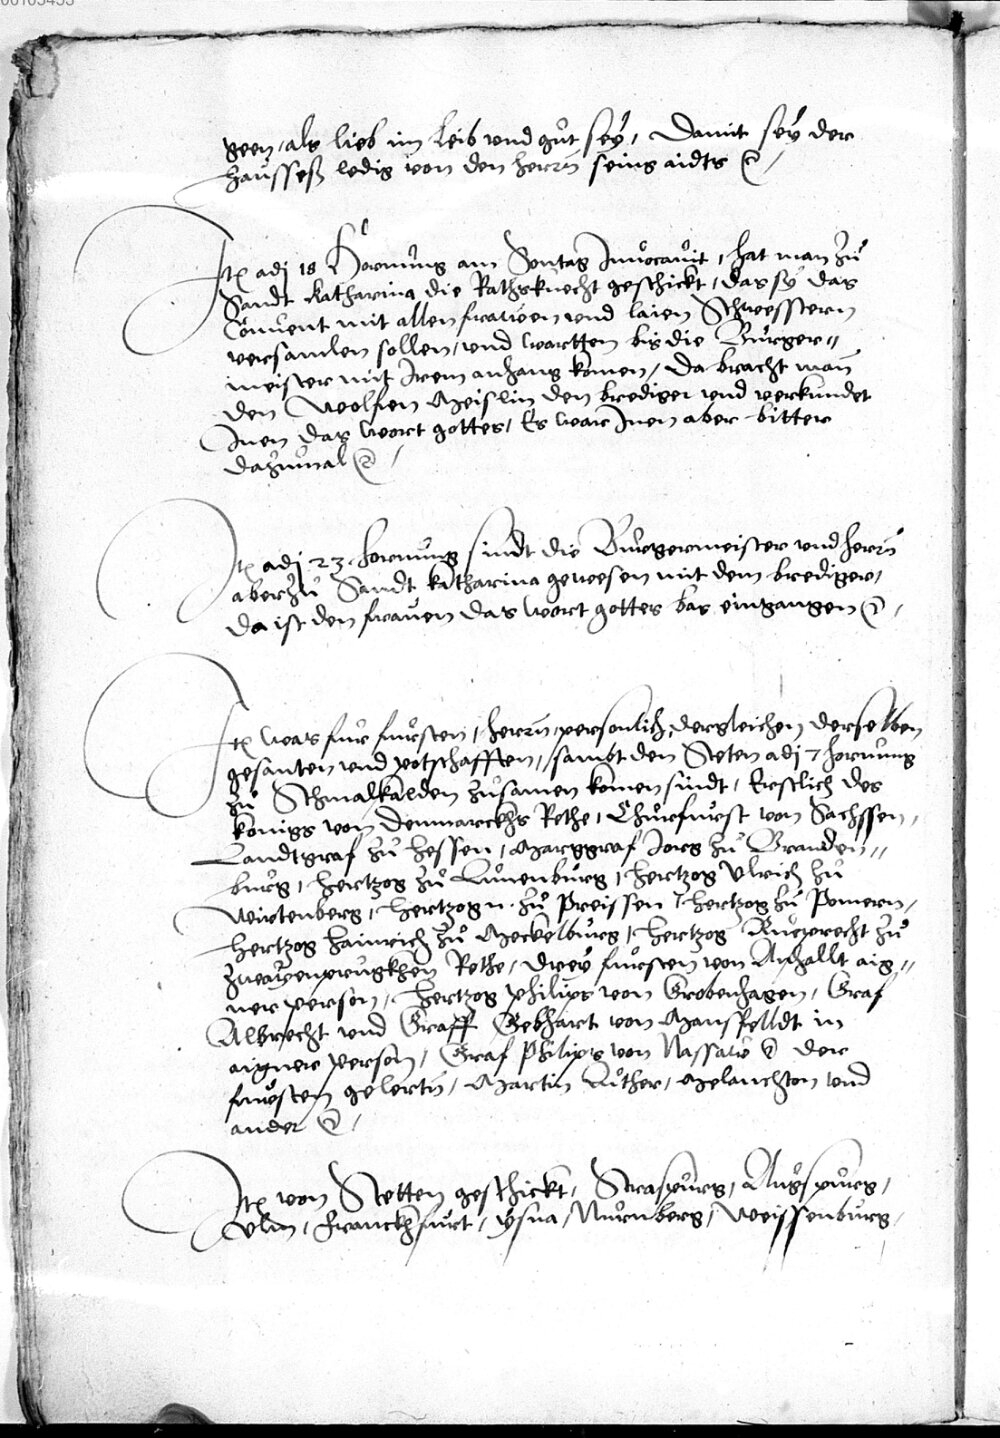 geen, als lieb im Leib vnd gůt seÿ, Damit seÿ der
haussess ledig von den herrn seins aidts
Jtem adj 18 Hornung am Sontag Jnuocauit, hat man zů
Sandt Katharina die Rathsknecht geschickt, das sÿ das
Conuent mit allen frawen vnd laien Schwesstern
versamlen sollen, vnd wartten bis die Burger-
meister mit Jrem anhang komen, Da bracht man
den Wolfen Meislin den brediger vnd verkundet
Jnen das wort gottes, Es war Jnen aber bitter
dazumal
Jtem adj 23 hornung sindt die Burgermeister vnd herrn
aber zů Sandt Katharina gewesen mit dem brediger,
da ist den frauen das wort gottes bas eingangen
Jtem was für fürsten, herrn, personlich, dergleichen derselben
gesanten vnd potschafften, sambt den Steten adj 7 hornung
zů Schmalkalden zusamen komen sindt, Erstlich des
königs von Denmarckhs Rethe, Churfürst von Sachssen,
Landtgraf zů Hessen, Marggraf Jorg zů Branden-
burg, Hertzog zů Lünenburg, Hertzog Vlrich zů
Wirtenberg, Hertzog n. zů Preissen, Hertzog zů Pomern,
Hertzog Hainrich zů Meckelburg, Hertzog Rueprecht zů
zwaÿenprugkhen Rethe, Dreÿ fürsten von Anhallt aig-
ner person, Hertzog Philips von Grobenhagen, Graf
Albrecht vnd Graff Gebhart von Mansfelldt in
aigner person, Graf Philips von Nassaw der
fürsten gelertn, Martin Luther, Melanchton vnd
ander
Jtem von Stetten geschickt, Straspurg, Augspurg,
Vlm, Franckhfurt, Ysna, Nürnberg, Weissenburg,